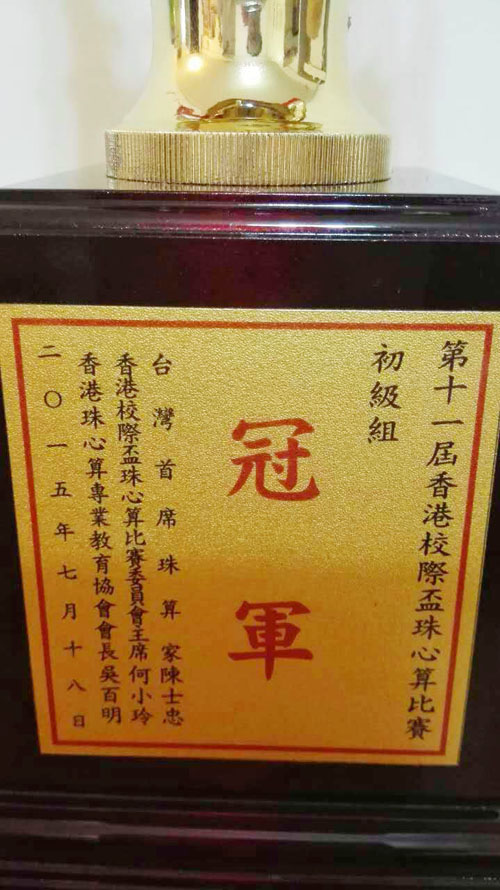 第十一屆香港校際盃珠心算比賽
初級組
冠軍
台灣首席珠算家陳士忠
香港校際盃珠心算比賽委員會主席何小玲
香港珠心算專業教育協會會長吳百明
二〇一五年七月十八日